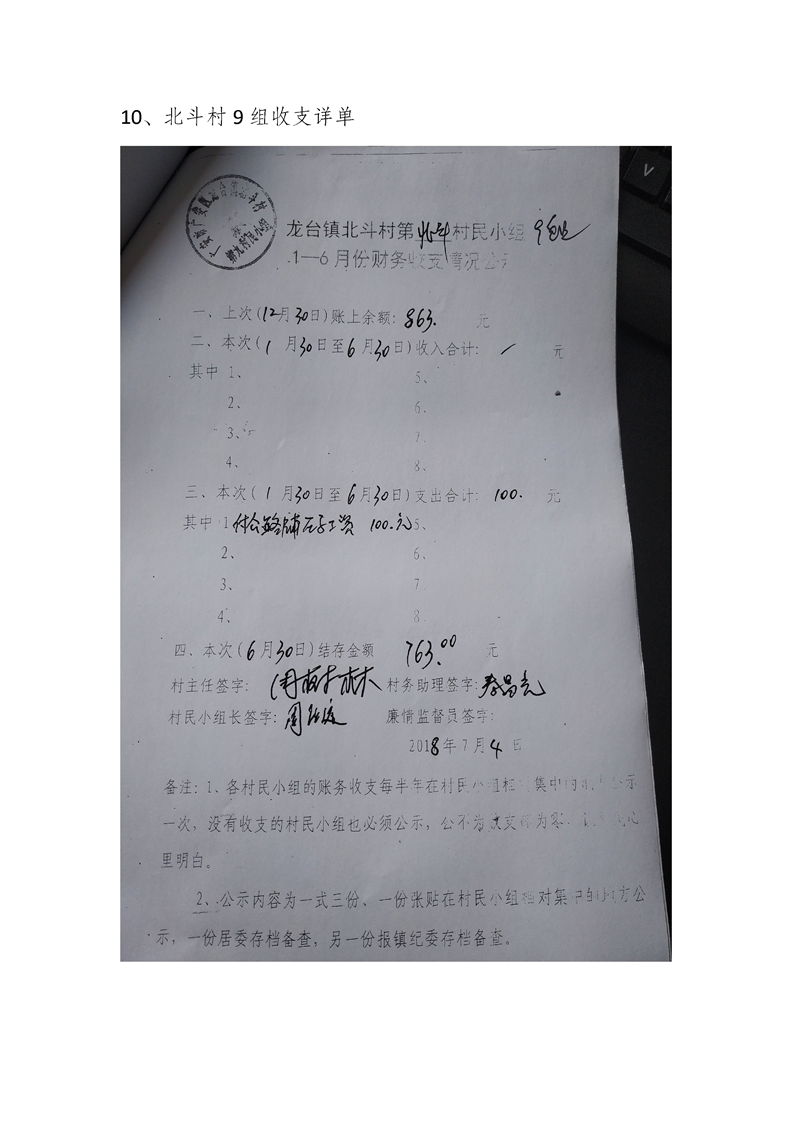 10、北斗村 9 组收支详单
龙台镇北斗村第北斗村民小组 9组
1—6月份财务收支情况公示
一、上次(12月30日)账上余额: 863. 元
二、本次( 1 月30日至6月30日)收入合计: / 元
其中 1、 5、
2、 6、
3、 7、
4、 8、
三、本次( 1 月30日至6月30日)支出合计: 100. 元
其中 1 付公路铺石子工资 100.元 5、
2、 6、
3、 7
4、 8
四、本次(6月30日)结存金额 763.00 元
村主任签字: 村务助理签字:
村民小组长签字: 廉情监督员签字:
2018年7月4日
备注: 1、各村民小组的账务收支每半年在村民小组相对集中的地方公示
一次，没有收支的村民小组也必须公示，
里明白。
2、公示内容为一式三份、一份张贴在村民小组相对集中的地方公
示，一份居委存档备查，另一份报镇纪委存档备查。